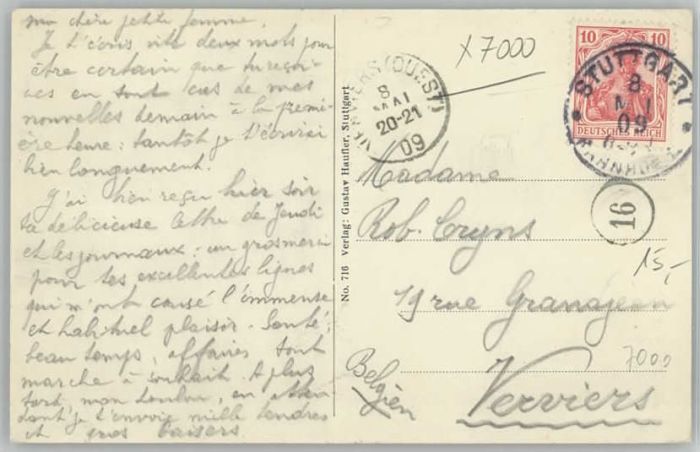 ma chère petite femme,
Je t'écris vite deux mots pour
être certain que tu reçoi-
ves en tout cas de mes
nouvelles demain à la premi-
ère heure: tantôt je t'écrirai
bien longuement.
J'ai bien reçu hier soir
ta délicieuse lettre de Jeudi
et les journaux: un gros merci
pour tes excellentes lignes
qui m'ont causé l'immense
et habituel plaisir. Santé,
beau temps, affaires tout
marche à souhait. A plus
tard, mon loulou, en atten-
dant je t'envoie mille tendres
et gros baisers
No. 716 Verlag: Gustav Haufler, Stuttgart.
X7000
VERVIERS (OUEST)
8
MAI
20-21
09
10 10
DEUTSCHES REICH
STUTTGART
8
MAI
09
16
Madame
Rob. Cryns
19 rue Grandjean
Verviers
Belgien
15,-
7000